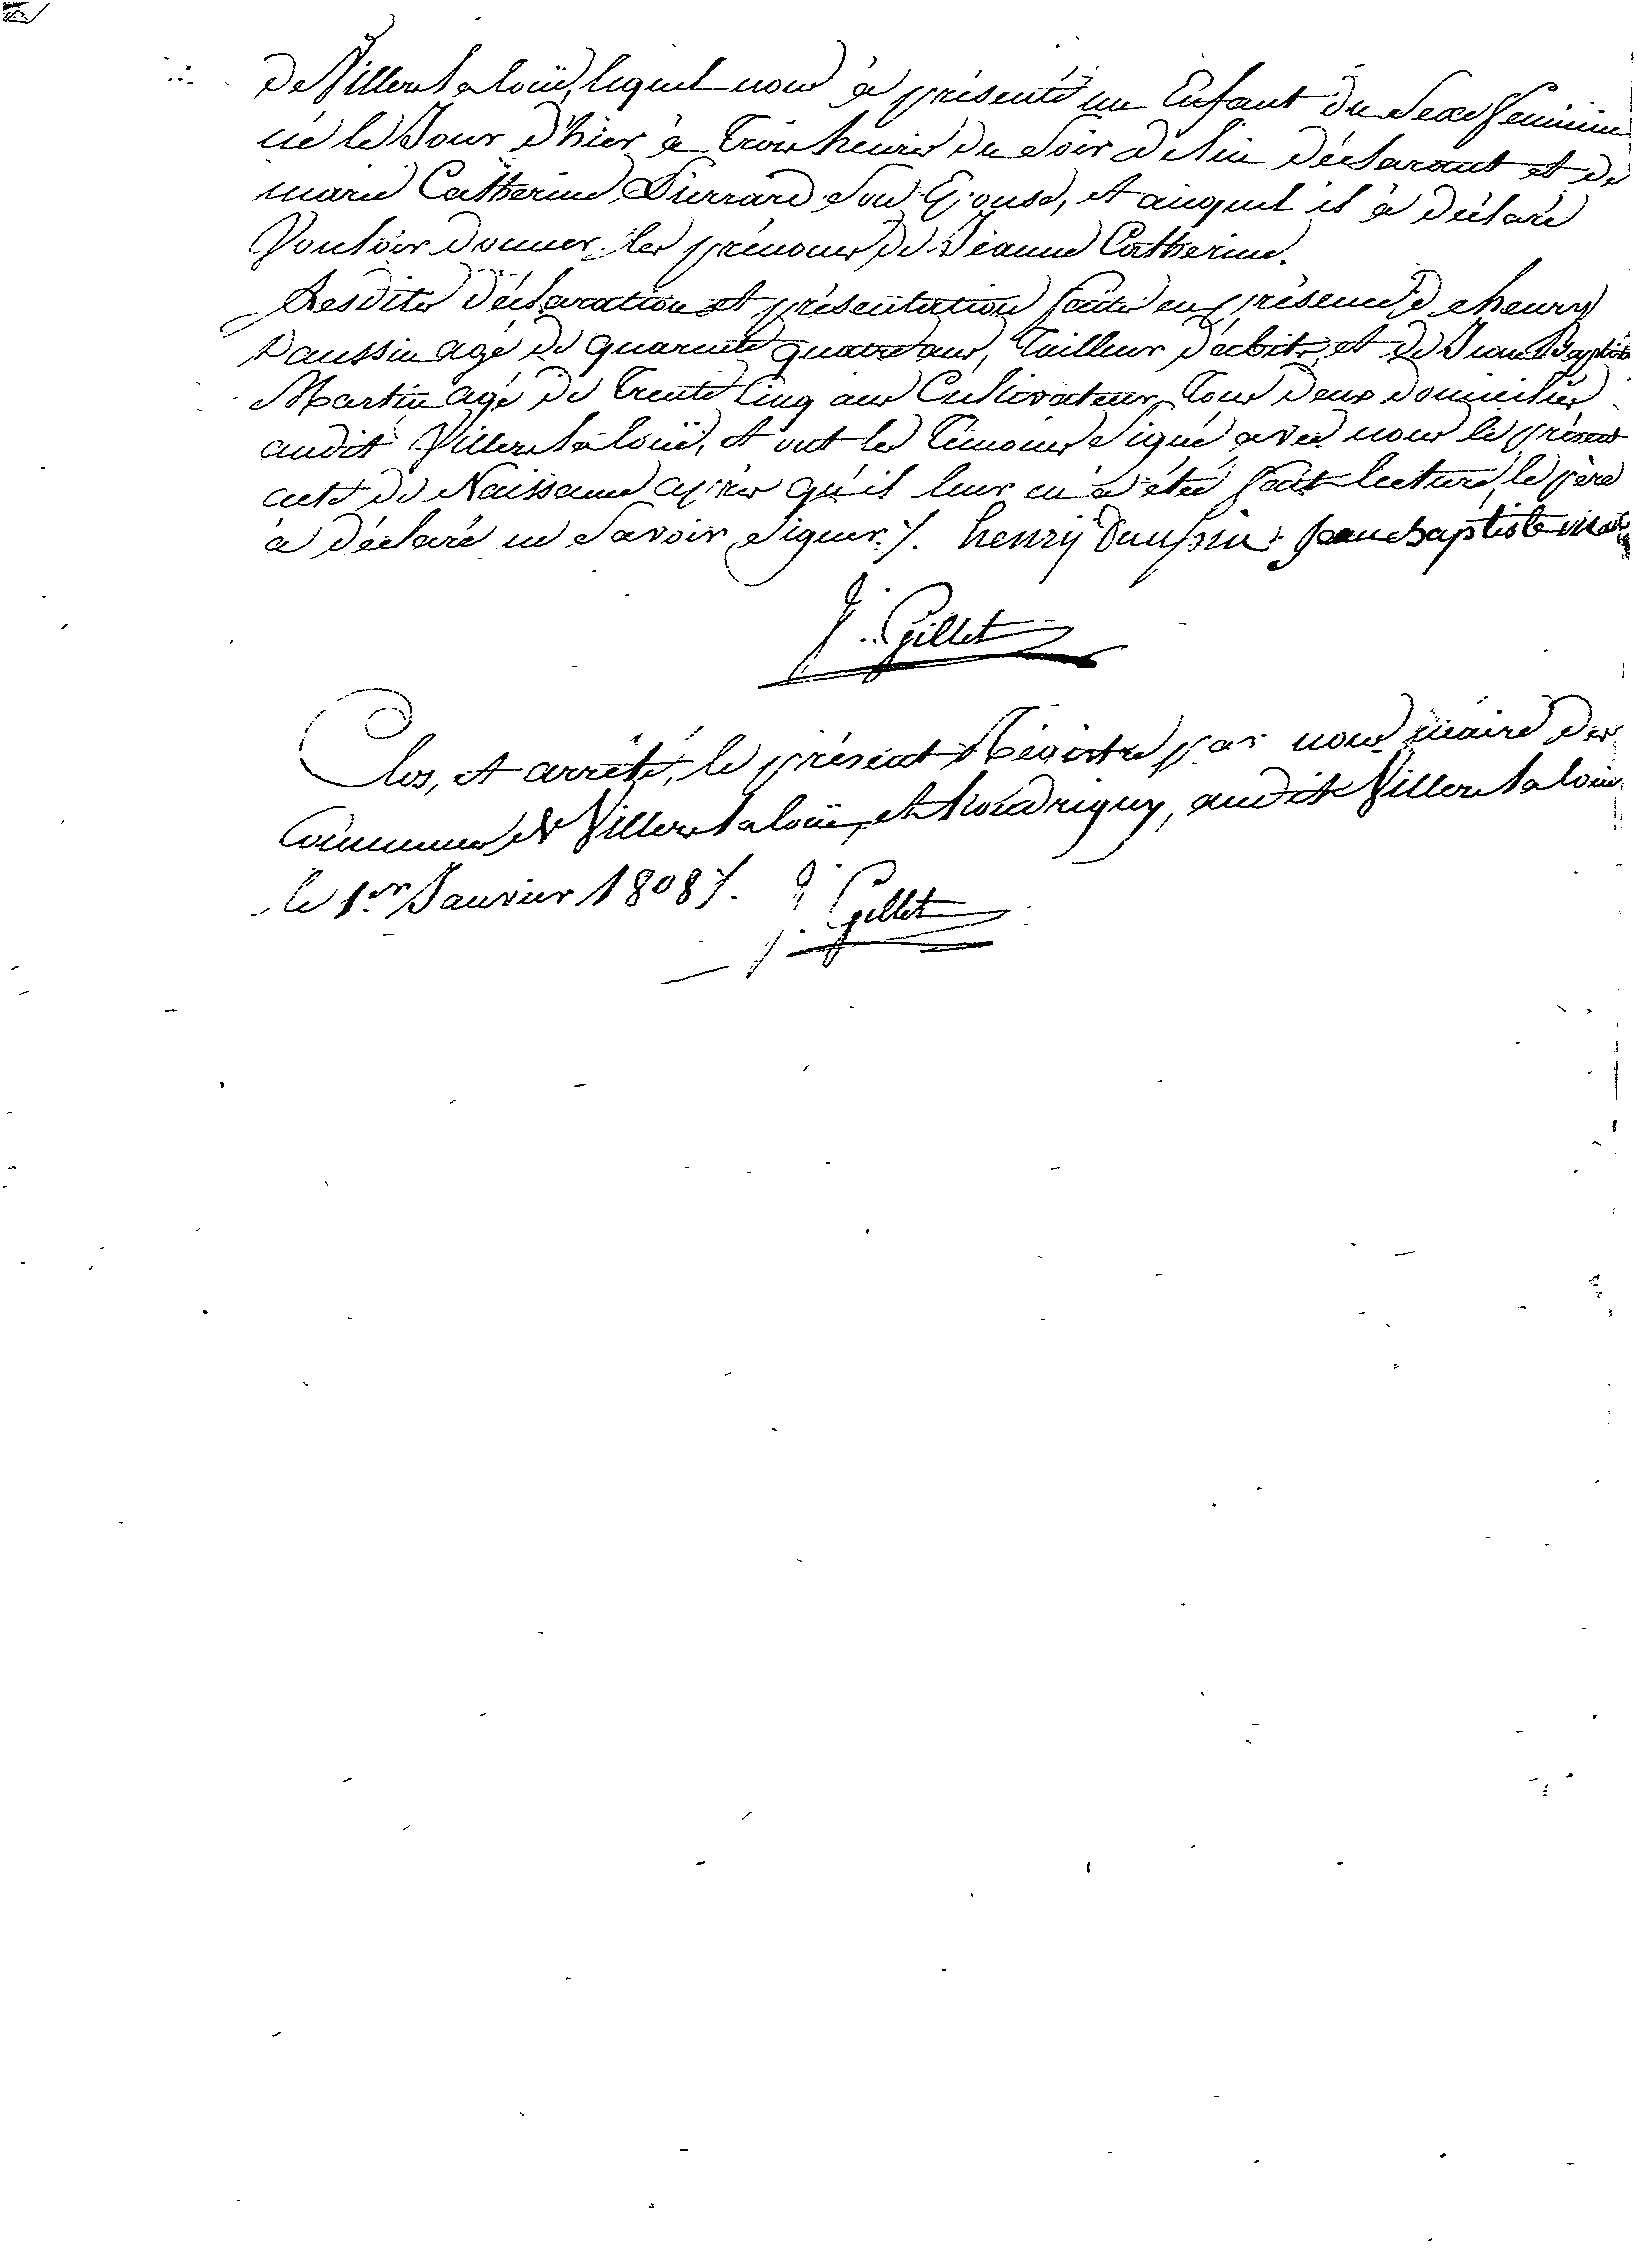 de Villers la loüe, lequel nous à présenté un Enfant du Sexe féminin
né le Jour d'hier à trois heures du Soir de lui déclarant et de
marie Catherine Pierrard Son Epouse, et auquel il à déclaré
Vouloir donner les prénoms de Jeanne Catherine.
Lesdites déclaration et présentation faites en présence de henry
Daussin agé de quarante quatre ans, tailleur d'habits, et de Jean Baptiste
Martin agé de trente Cinq ans Cultivateur, tous deux domiciliés
audit Villers la loüe, et ont les témoins Signé avec nous le présent
acte de Naissance après qu'il leur en à été fait lecture, le père
à déclaré ne Savoir Signer ./. henrÿ Daussin Jean baptiste
J. Gillet
Clos, et arrêté, le présent Régistre par nous maire des
Communes de Villers la loüe, et houdrigny, audit Villers la loüe
le 1.er Janvier 1808 ./. J. Gillet